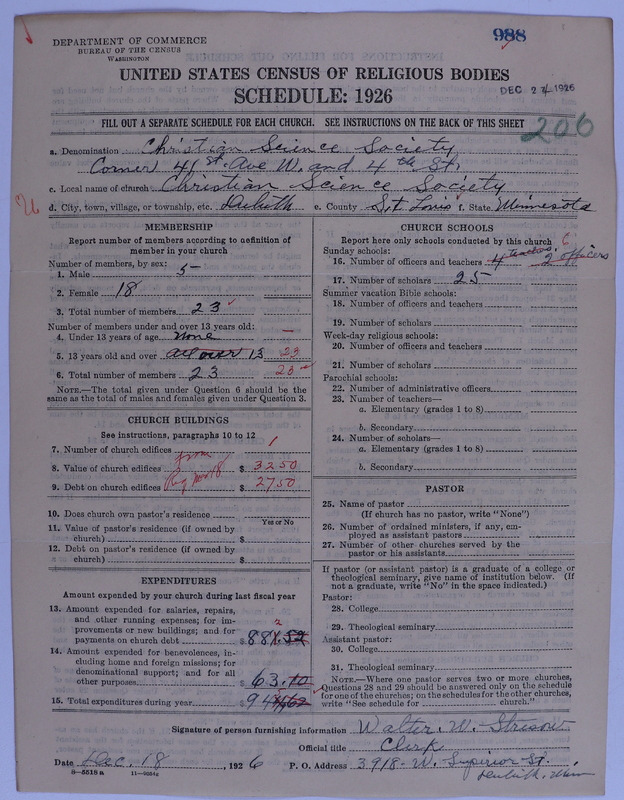 988
DEPARTMENT OF COMMERCE
BUREAU OF THE CENSUS
WASHINGTON
UNITED STATES CENSUS OF RELIGIOUS BODIES
SCHEDULE: 1926
DEC 27 1926
FILL OUT A SEPARATE SCHEDULE FOR EACH CHURCH. SEE INSTRUCTIONS ON THE BACK OF THIS SHEET
206
a. Denomination Christian Science Society
Corner 41st Ave W. and 4th St.
c. Local name of church Christian Science Society
d. City, town, village, or township, etc. Duluth e. County St. Louis f. State Minnesota
MEMBERSHIP
Report number of members according to definition of member in your church
Number of members, by sex:
1. Male 5
2. Female 18
3. Total number of members 23
Number of members under and over 13 years old:
4. Under 13 years of age none
5. 13 years old and over all over 13 23
6. Total number of members 23 23
NOTE.—The total given under Question 6 should be the same as the total of males and females given under Question 3.
CHURCH BUILDINGS
See instructions, paragraphs 10 to 12
7. Number of church edifices 1
from
8. Value of church edifices $ 3250
9. Debt on church edifices $ 2750
10. Does church own pastor's residence
Yes or No
11. Value of pastor's residence (if owned by church) $
12. Debt on pastor's residence (if owned by church) $
EXPENDITURES
Amount expended by your church during last fiscal year
13. Amount expended for salaries, repairs, and other running expenses; for improvements or new buildings; and for payments on church debt $ 881.52
14. Amount expended for benevolences, including home and foreign missions; for denominational support; and for all other purposes $ 63.10
15. Total expenditures during year $ 944.62
CHURCH SCHOOLS
Report here only schools conducted by this church
Sunday schools:
6
16. Number of officers and teachers 4 teachers 2 officers
17. Number of scholars 25
Summer vacation Bible schools:
18. Number of officers and teachers
19. Number of scholars
Week-day religious schools:
20. Number of officers and teachers
21. Number of scholars
Parochial schools:
22. Number of administrative officers
23. Number of teachers—
a. Elementary (grades 1 to 8)
b. Secondary
24. Number of scholars—
a. Elementary (grades 1 to 8)
b. Secondary
PASTOR
25. Name of pastor
(If church has no pastor, write "None")
26. Number of ordained ministers, if any, employed as assistant pastors
27. Number of other churches served by the pastor or his assistants
If pastor (or assistant pastor) is a graduate of a college or theological seminary, give name of institution below. (If not a graduate, write "No" in the space indicated.)
Pastor:
28. College
29. Theological seminary
Assistant pastor:
30. College
31. Theological seminary
NOTE.—Where one pastor serves two or more churches, Questions 28 and 29 should be answered only on the schedule for one of the churches; on the schedules for the other churches, write "See schedule for church."
Signature of person furnishing information Walter. W. Strisow
Official title Clerk
Date Dec. 18, 1926 P. O. Address 3918- W. Superior St.
Duluth. Minn
8—5518 a 11—9664g